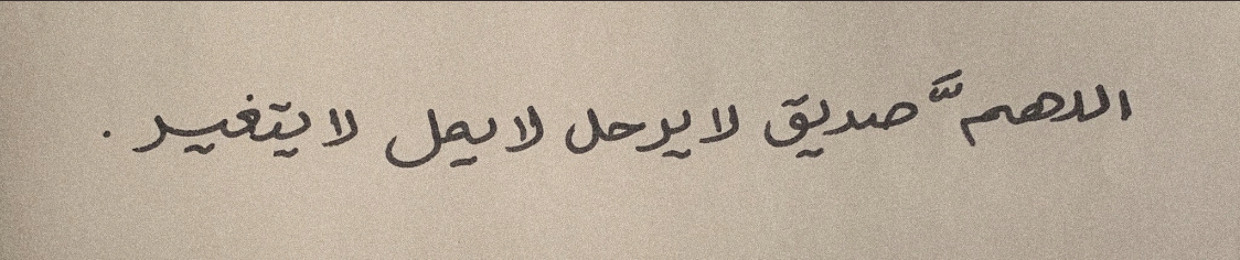 اللهمَّ صديق لا يرحل لا يمل لا يتغير .